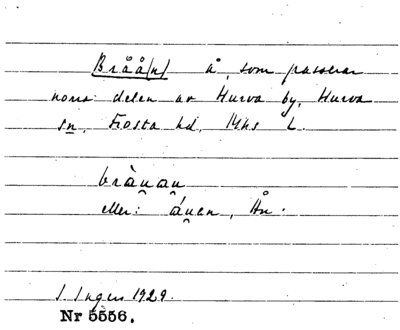 Bråå(n) å, som passerar
norra delen av Hurva by, Hurva
sn, Frosta hd, Mhs L.
bràu̯au̯
eller: áu̯en, Hn.
J. Ingers 1929.
Nr 5556.